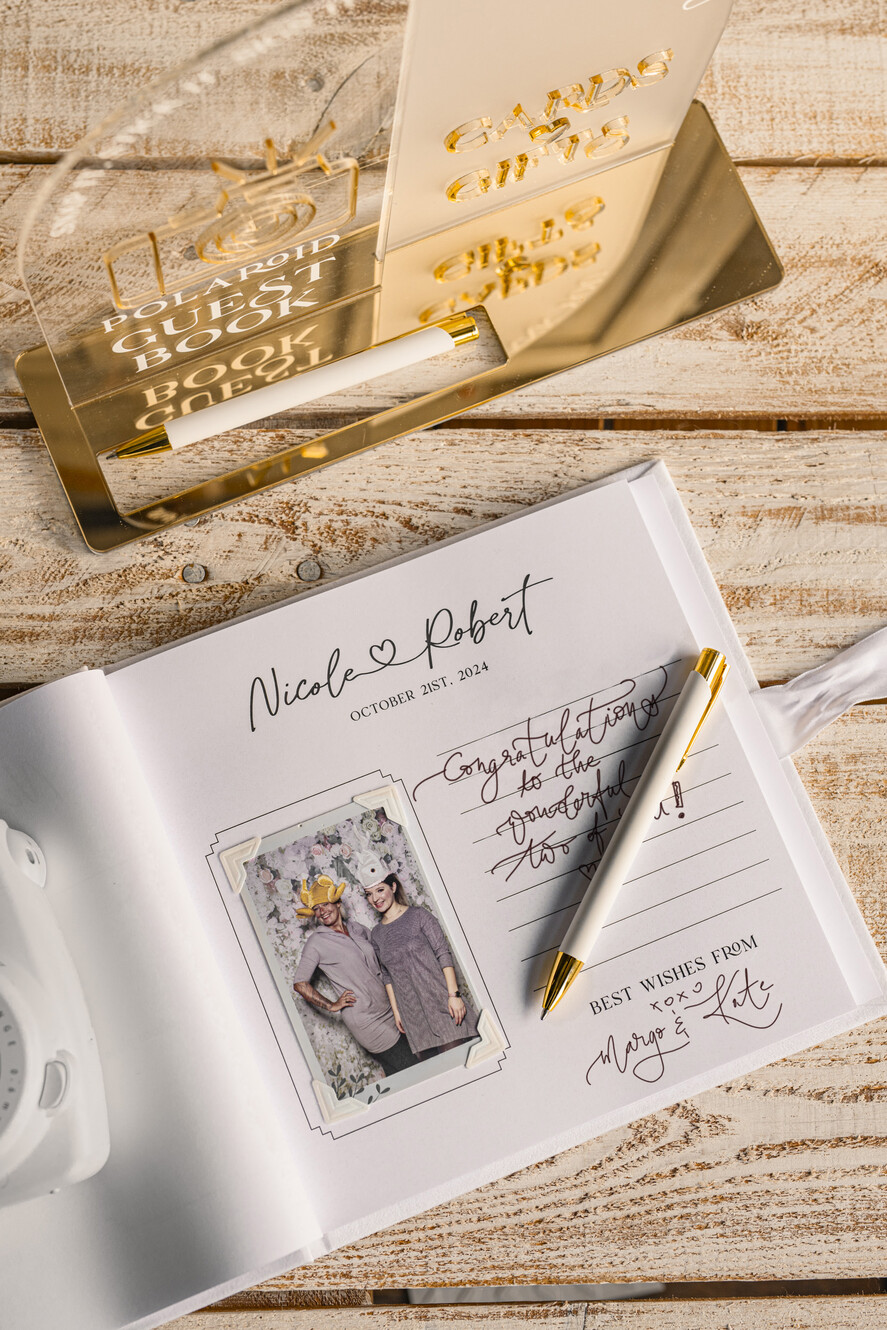 CARDS
&
GIFTS
POLAROID
GUEST
BOOK
Nicole Robert
OCTOBER 21ST, 2024
Congratulations
to the
wonderful
two of
BEST WISHES FROM
xoxo
Margo & Kate